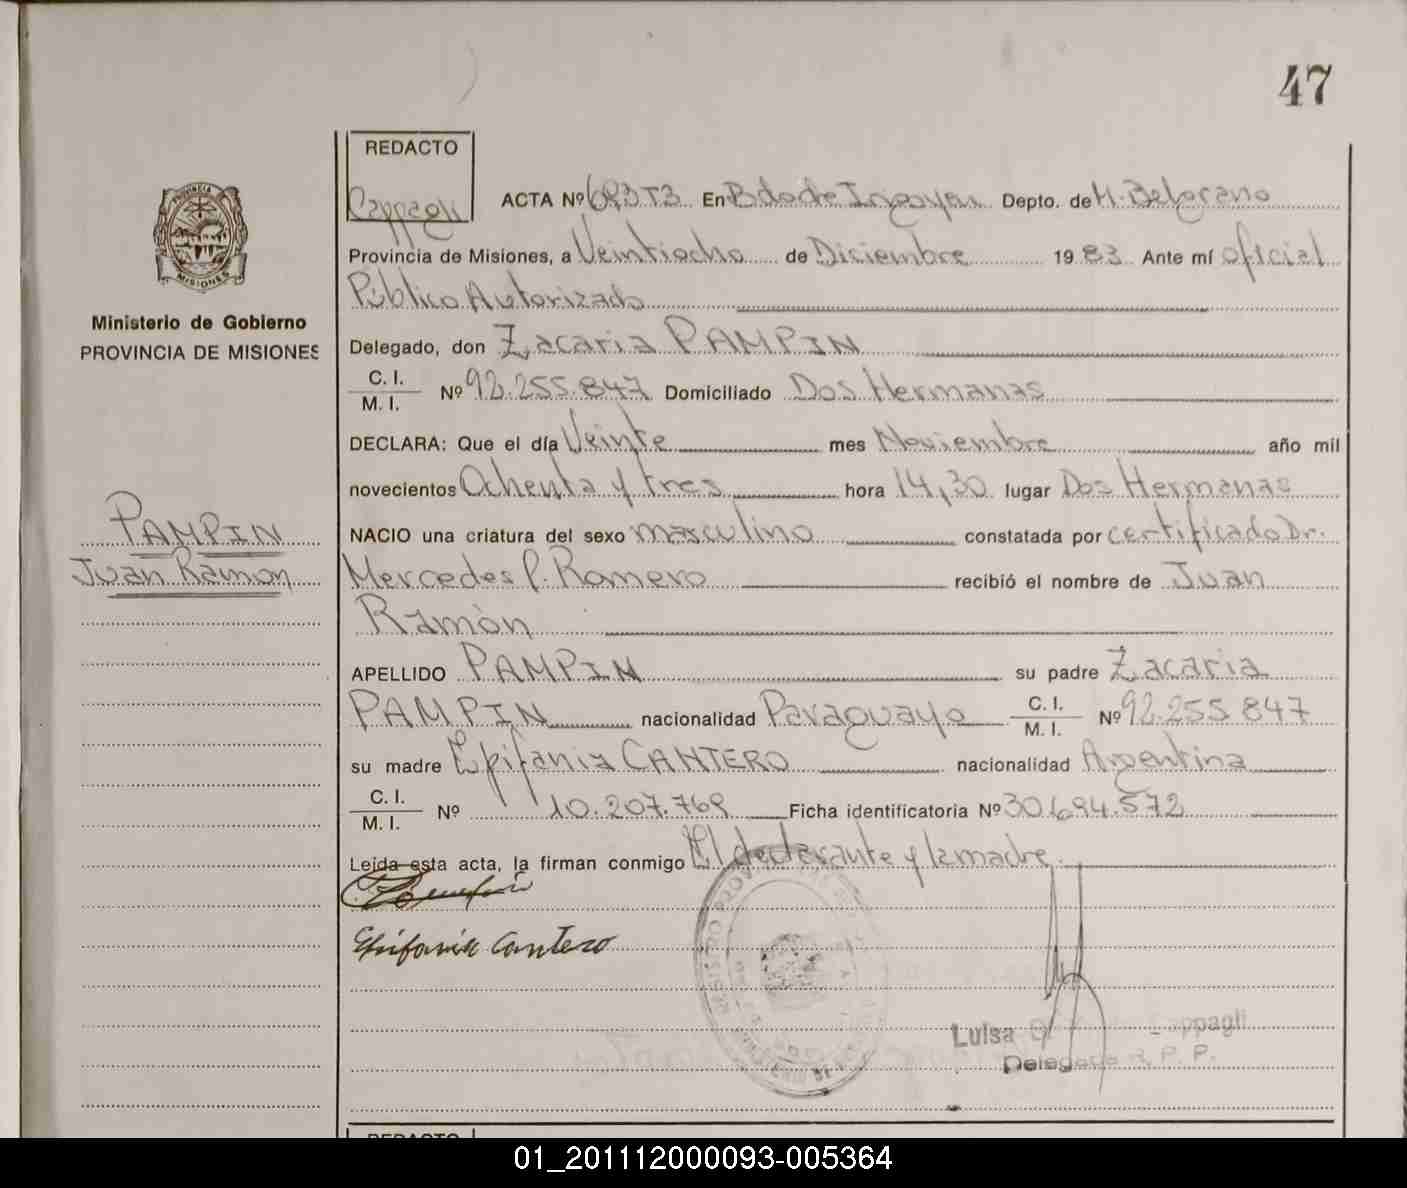 47
REDACTO
Cappagli
ACTA Nº 693T3 En Bdo de Irigoyen Depto. de M. Belgrano
Provincia de Misiones, a Veintiocho de Diciembre 1983 Ante mí oficial
Público Autorizado
Delegado, don Zacaria PAMPIN
C. I.
M. I. Nº 92.255.847 Domiciliado Dos Hermanas
DECLARA: Que el día Veinte mes Noviembre año mil
novecientos Ochenta y tres hora 14,30 lugar Dos Hermanas
NACIO una criatura del sexo masculino constatada por certificado Dr.
Mercedes Romero recibió el nombre de Juan
Ramòn
APELLIDO PAMPIN su padre Zacaria
PAMPIN nacionalidad Paraguayo C. I. M. I. Nº 92.255.847
su madre Epifania CANTERO nacionalidad Argentina
C. I.
M. I. Nº 10.207.769 Ficha identificatoria Nº 30.694.572
Leída esta acta, la firman conmigo El declarante y la madre.
Epifania Cantero
Luisa Cappagli
Delegada R. P. P.
PROVINCIA
MISIONES
Ministerio de Gobierno
PROVINCIA DE MISIONES
PAMPIN
Juan Ramon
REDACTO
01_201112000093-005364